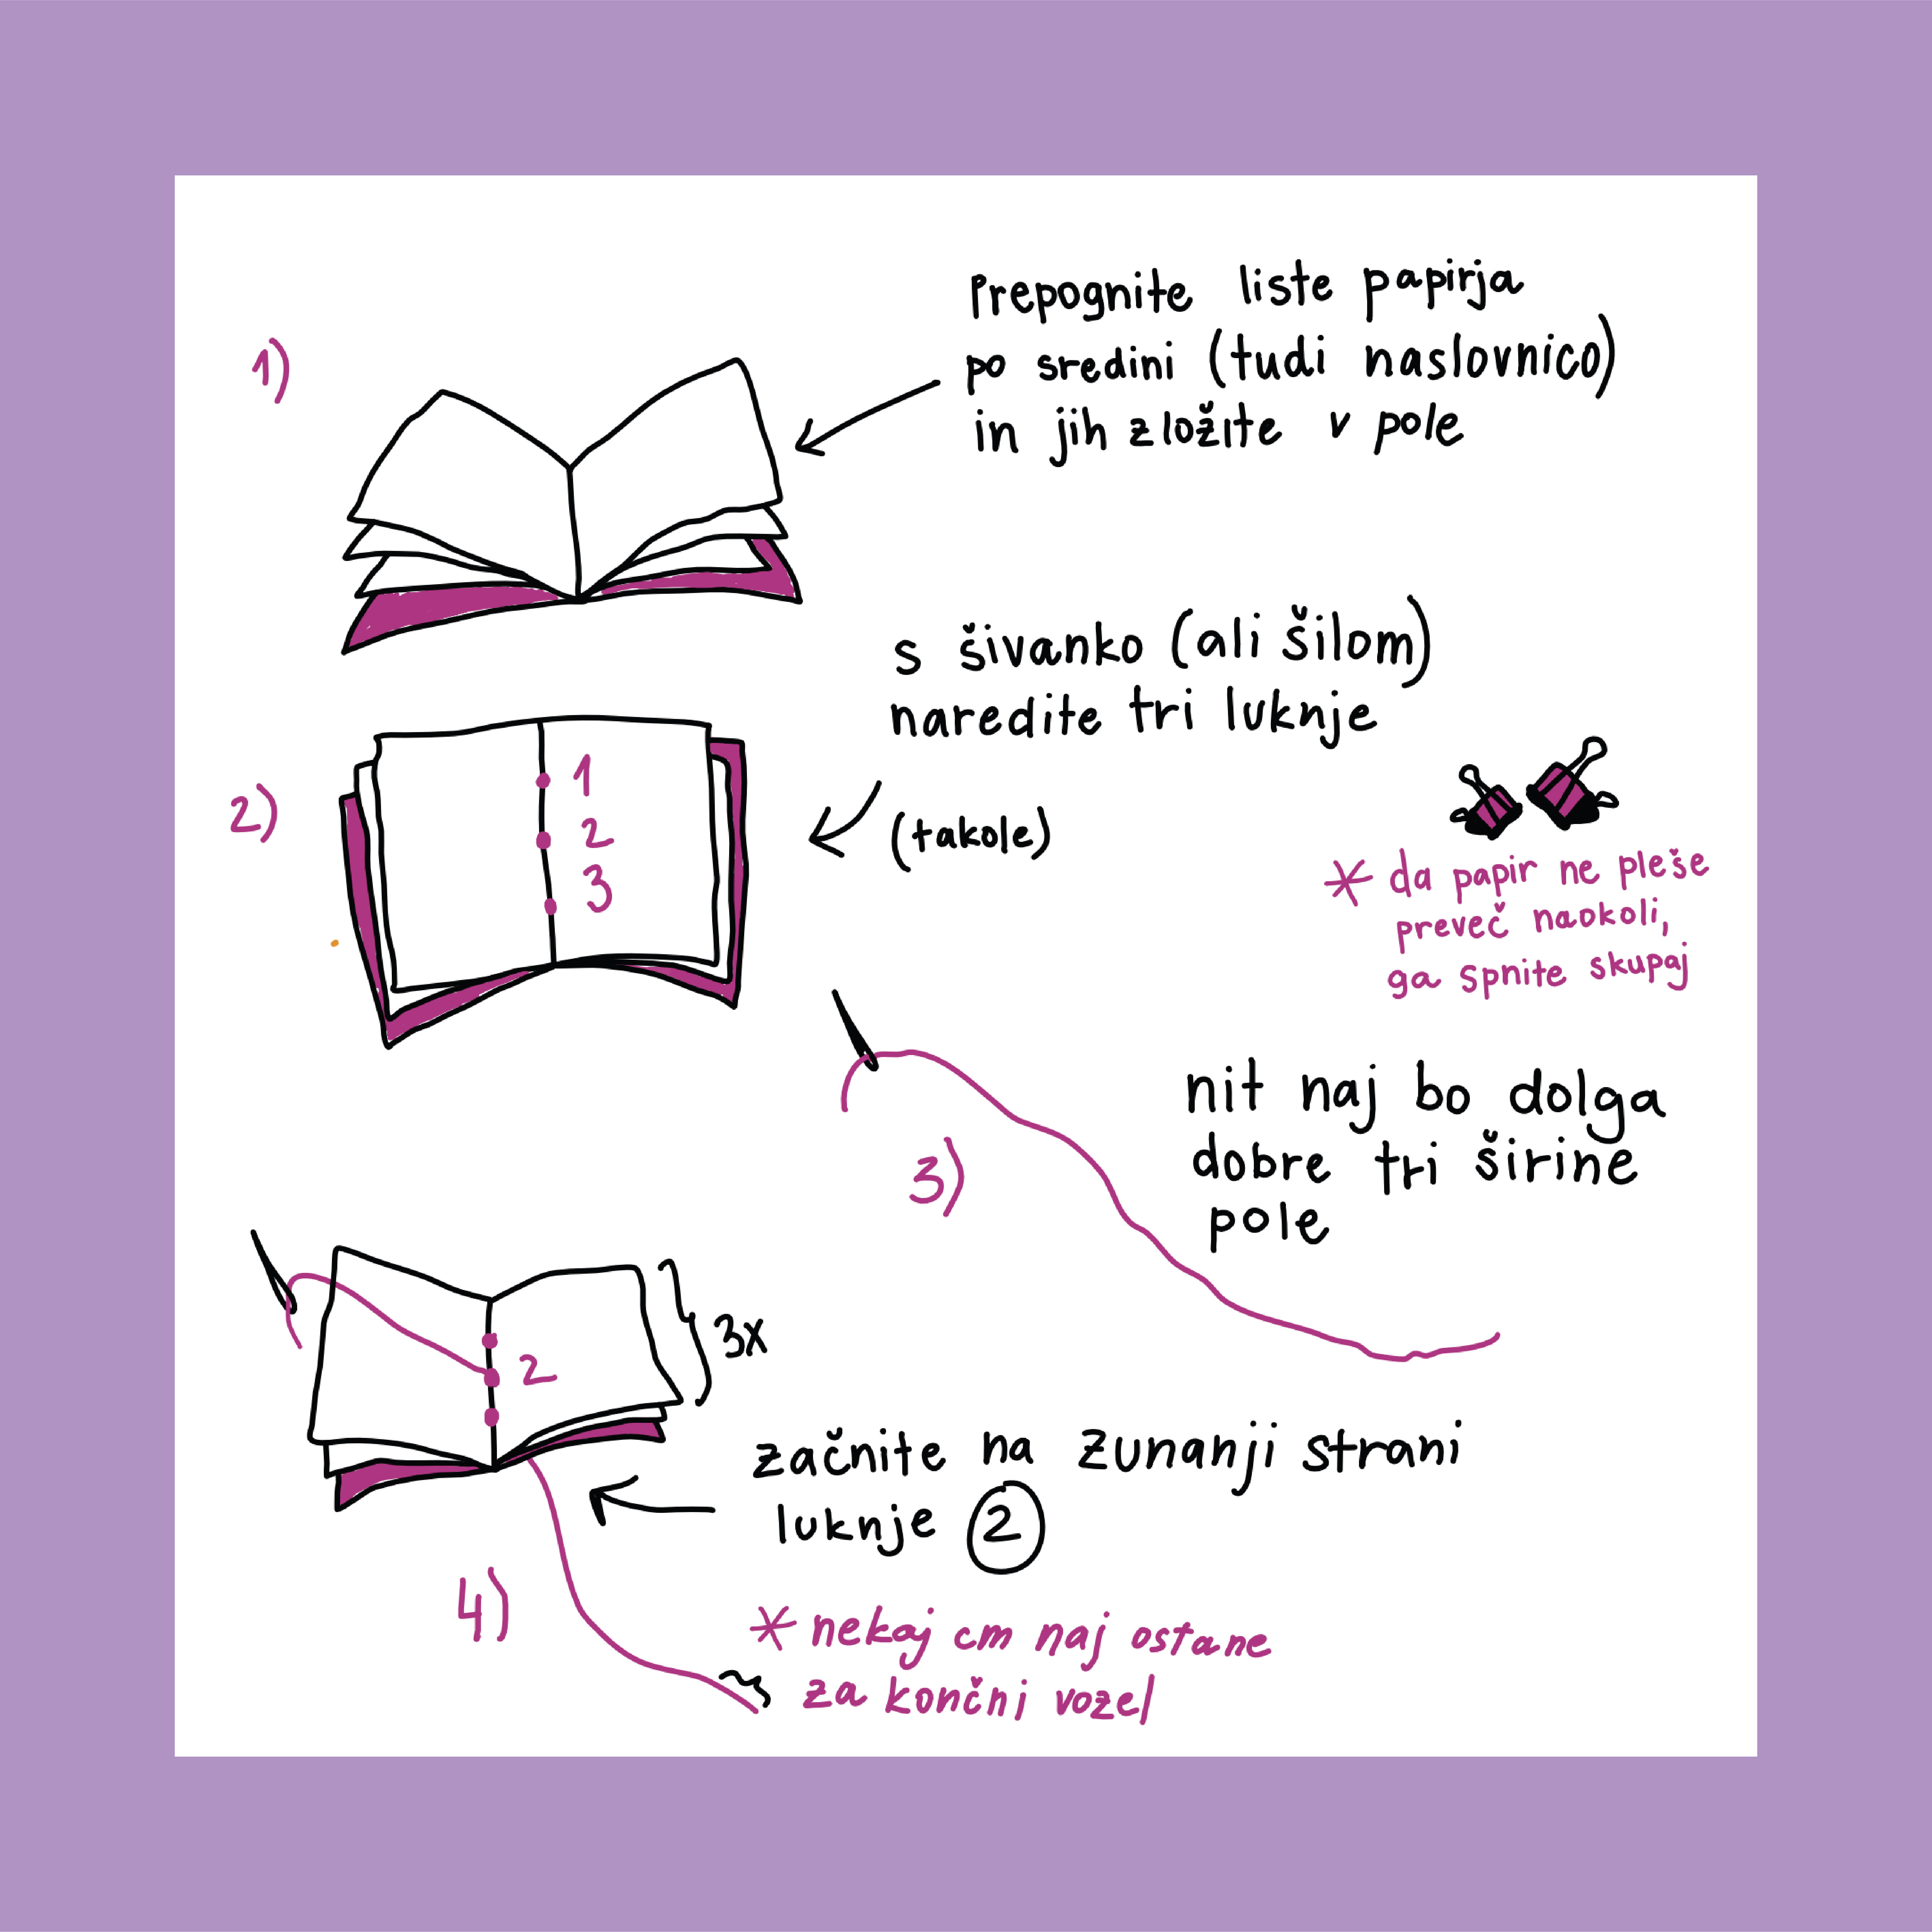 1)
prepognite liste papirja
po sredini (tudi naslovnico)
in jih zložite v pole
s šivanko (ali šilom)
naredite tri luknje
2)
1
2
3
(takole)
* da papir ne pleše
preveč naokoli,
ga spnite skupaj
3)
nit naj bo dolga
dobre tri širine
pole
2
3x
začnite na zunanji strani
luknje 2
4)
* nekaj cm naj ostane
za končni vozel